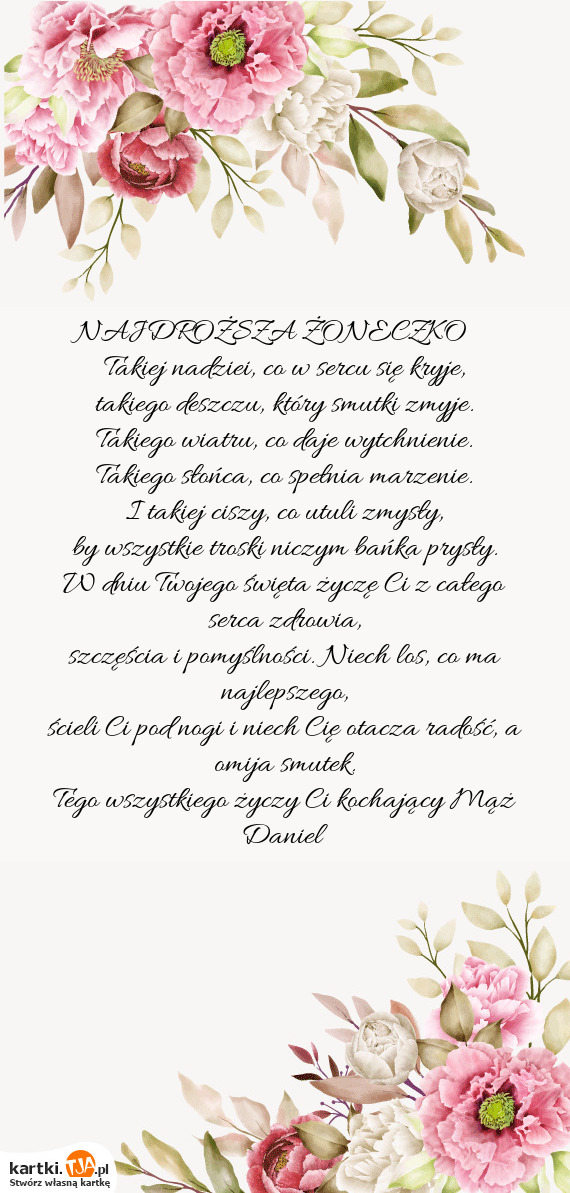 NAJDROŻSZA ŻONECZKO
Takiej nadziei, co w sercu się kryje,
takiego deszczu, który smutki zmyje.
Takiego wiatru, co daje wytchnienie.
Takiego słońca, co spełnia marzenie.
I takiej ciszy, co utuli zmysły,
by wszystkie troski niczym bańka prysły.
W dniu Twojego święta życzę Ci z całego
serca zdrowia,
szczęścia i pomyślności. Niech los, co ma
najlepszego,
ścieli Ci pod nogi i niech Cię otacza radość, a
omija smutek.
Tego wszystkiego życzy Ci kochający Mąż
Daniel
kartki.TJA.pl
Stwórz własną kartkę